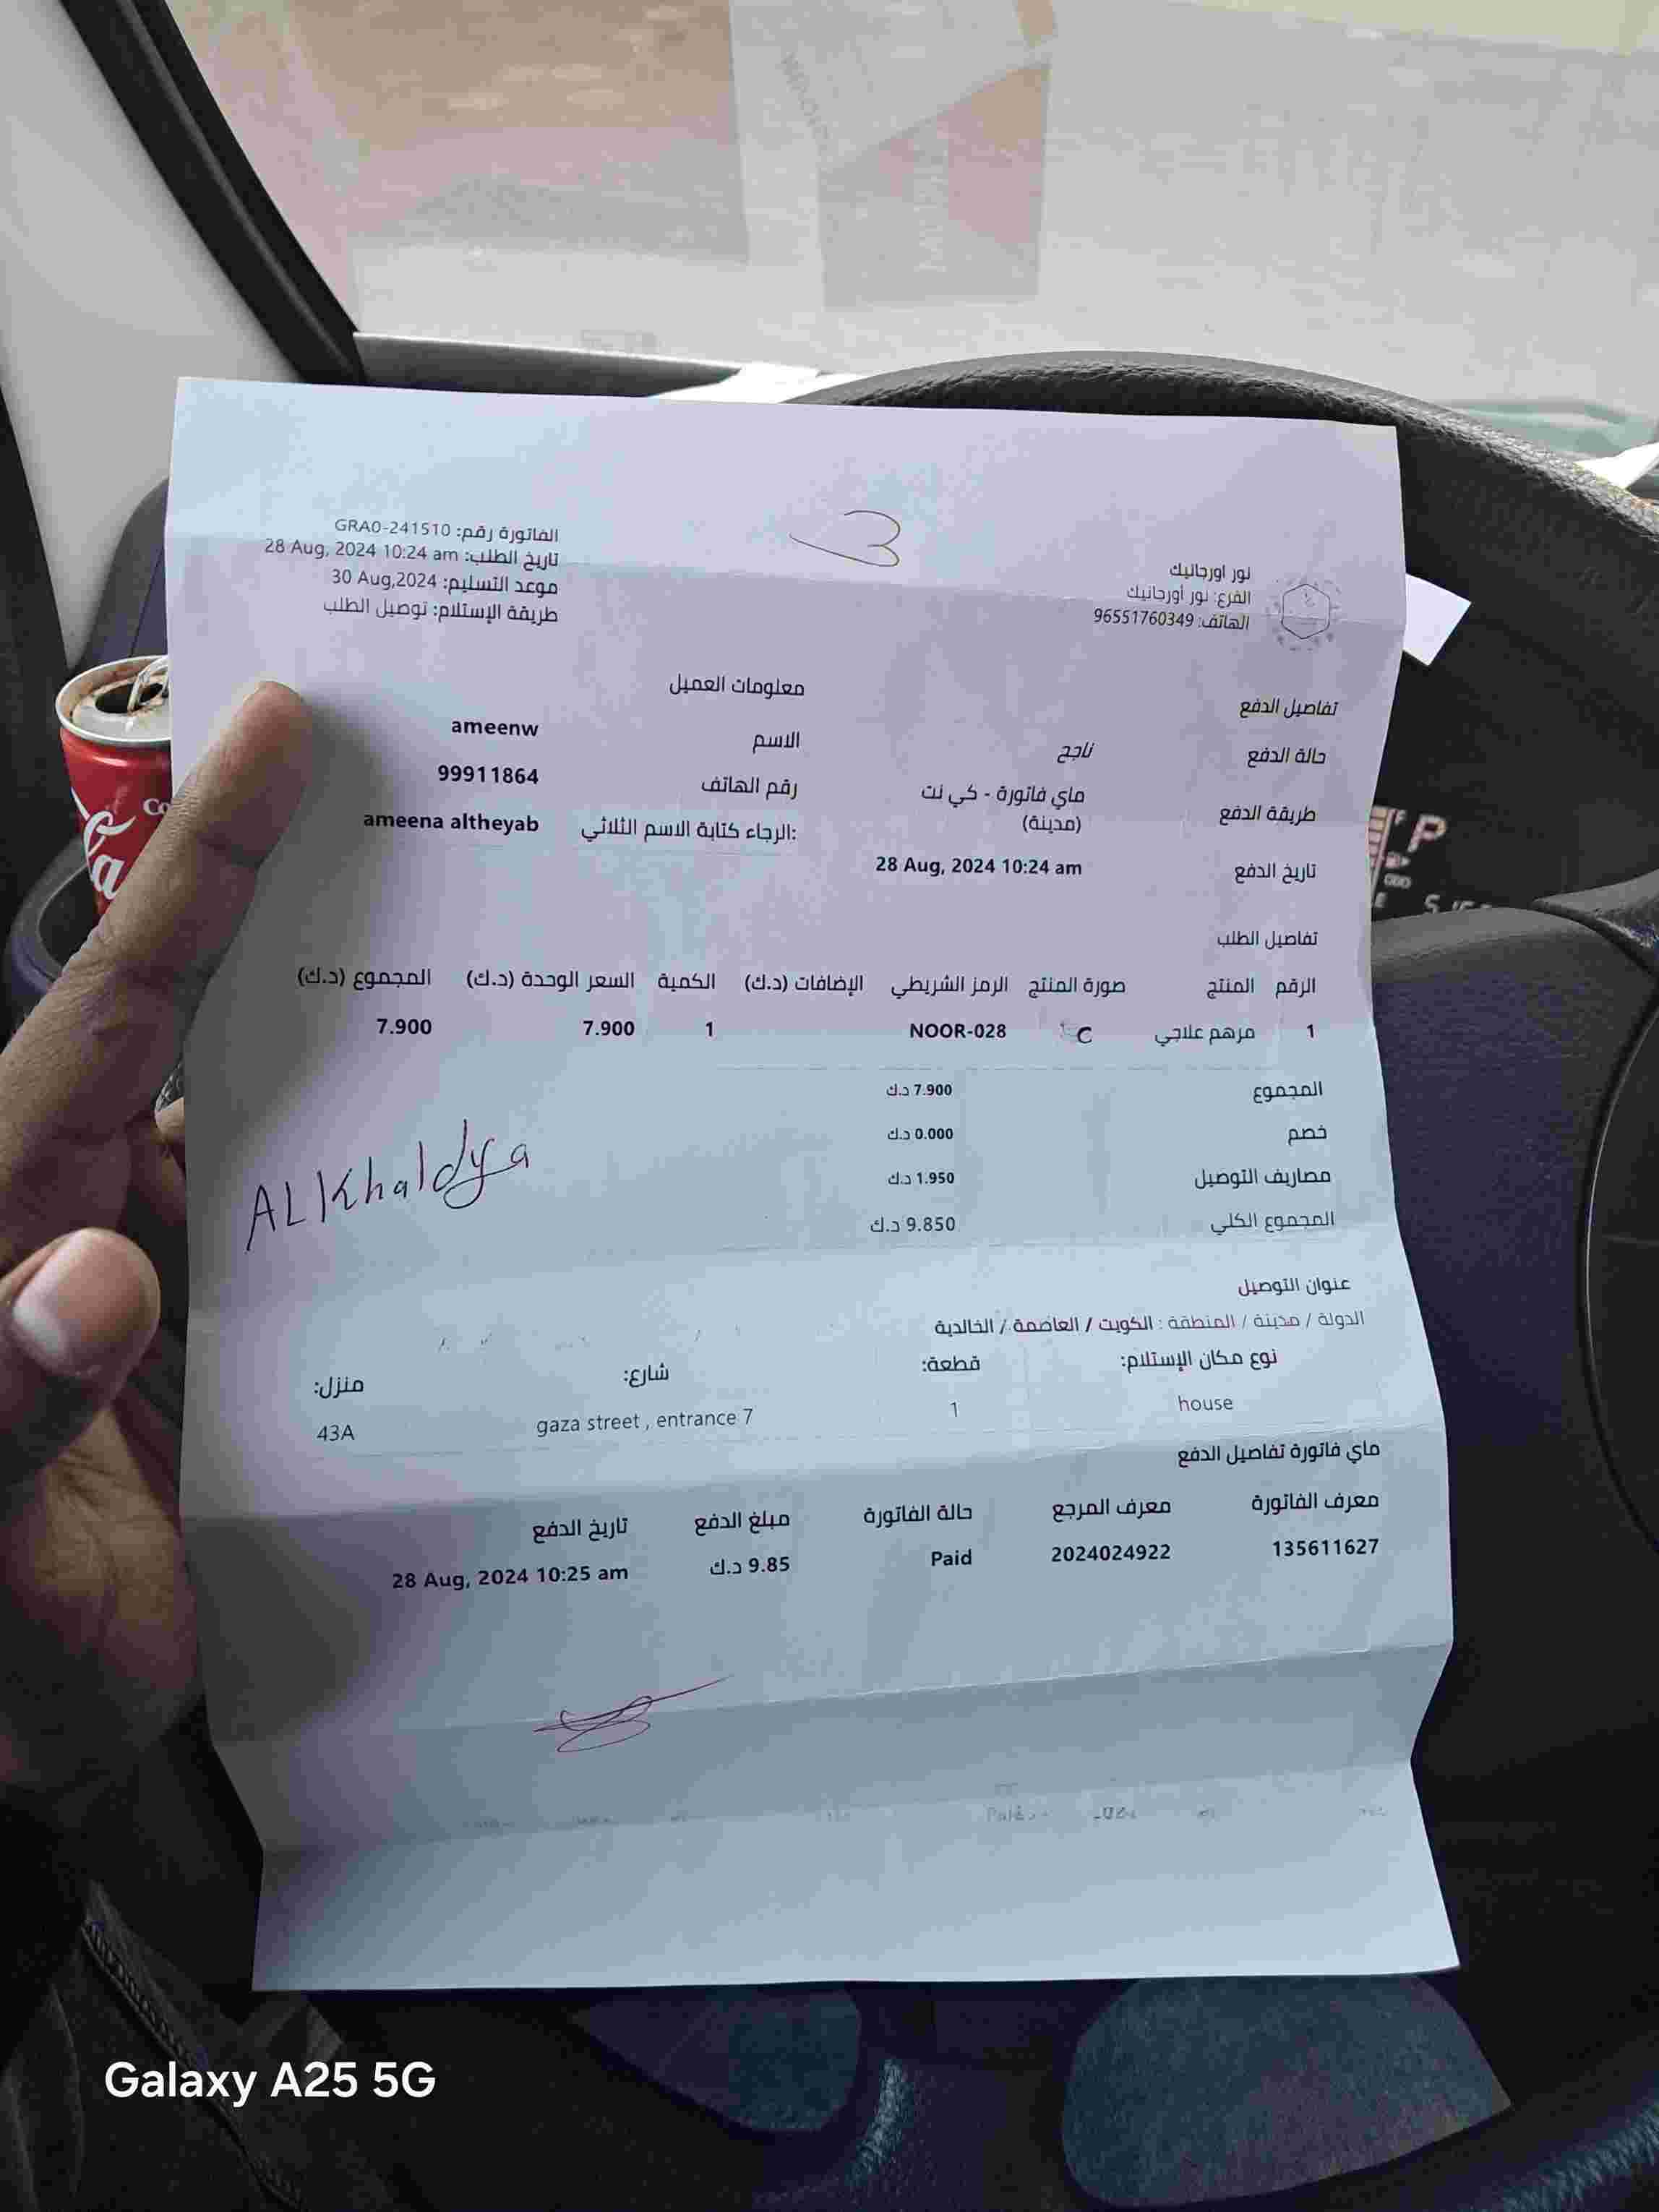 3
نور اورجانيك
الفرع: نور أورجانيك
الهاتف: 96551760349
الفاتورة رقم: GRA0-241510
تاريخ الطلب: 28 Aug, 2024 10:24 am
موعد التسليم: 30 Aug,2024
طريقة الإستلام: توصيل الطلب
تفاصيل الدفع
حالة الدفع ناجح
طريقة الدفع ماي فاتورة - كي نت (مدينة)
تاريخ الدفع 28 Aug, 2024 10:24 am
معلومات العميل
الاسم ameenw
رقم الهاتف 99911864
الرجاء كتابة الاسم الثلاثي: ameena altheyab
تفاصيل الطلب
الرقم المنتج صورة المنتج الرمز الشريطي الإضافات (د.ك) الكمية السعر الوحدة (د.ك) المجموع (د.ك)
1 مرهم علاجي NOOR-028 1 7.900 7.900
المجموع 7.900 د.ك
خصم 0.000 د.ك
مصاريف التوصيل 1.950 د.ك
المجموع الكلي 9.850 د.ك
AL Khaldya
عنوان التوصيل
الدولة / مدينة / المنطقة : الكويت / العاصمة / الخالدية
نوع مكان الإستلام: قطعة: شارع: منزل:
house 1 gaza street , entrance 7 43A
ماي فاتورة تفاصيل الدفع
معرف الفاتورة معرف المرجع حالة الفاتورة مبلغ الدفع تاريخ الدفع
135611627 2024024922 Paid 9.85 د.ك 28 Aug, 2024 10:25 am
Galaxy A25 5G